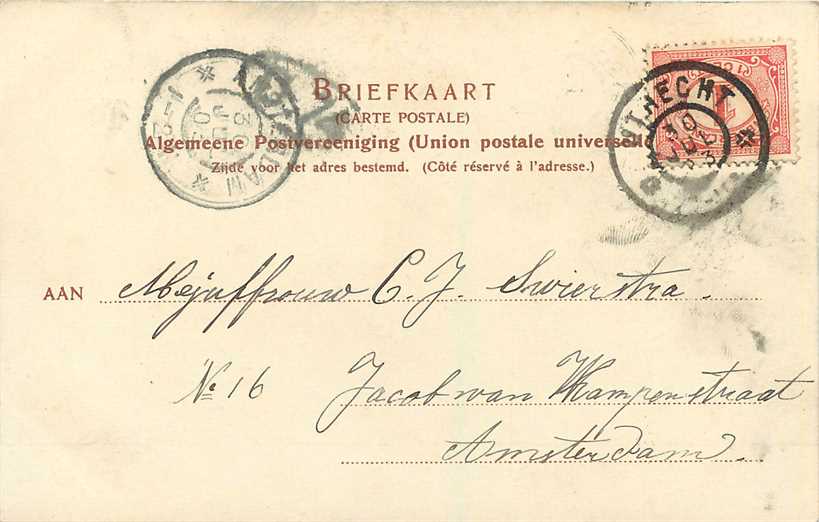 BRIEFKAART
(CARTE POSTALE)
Algemeene Postvereeniging (Union postale universelle)
Zijde voor het adres bestemd. (Côté réservé à l'adresse.)
UTRECHT
AAN Mejuffrouw C. J. Swierstra.
No 16 Jacob van Kampenstraat
Amsterdam.